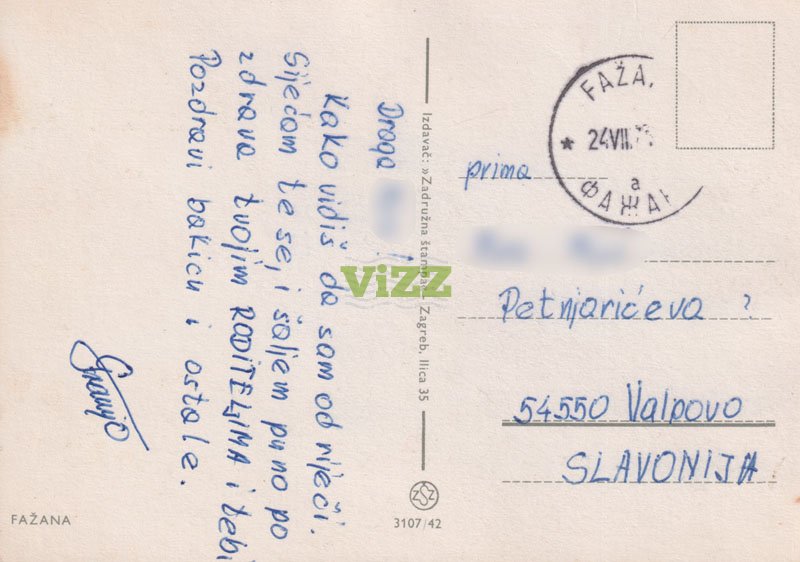 Draga !
Kako vidiš da sam od riječi.
Sijećam te se, i šaljem puno po
zdrava tvojim RODITELJIMA i tebi
Pozdravi bakicu i ostale.
Izdavač: »Zadružna štampa« - Zagreb, Ilica 35
FAŽA
24 VII.
a
ФАЖАН
prima
Petnjarićeva ?
54550 Valpovo
SLAVONIJA
ViZZ
ZSZ
3107/42
FAŽANA